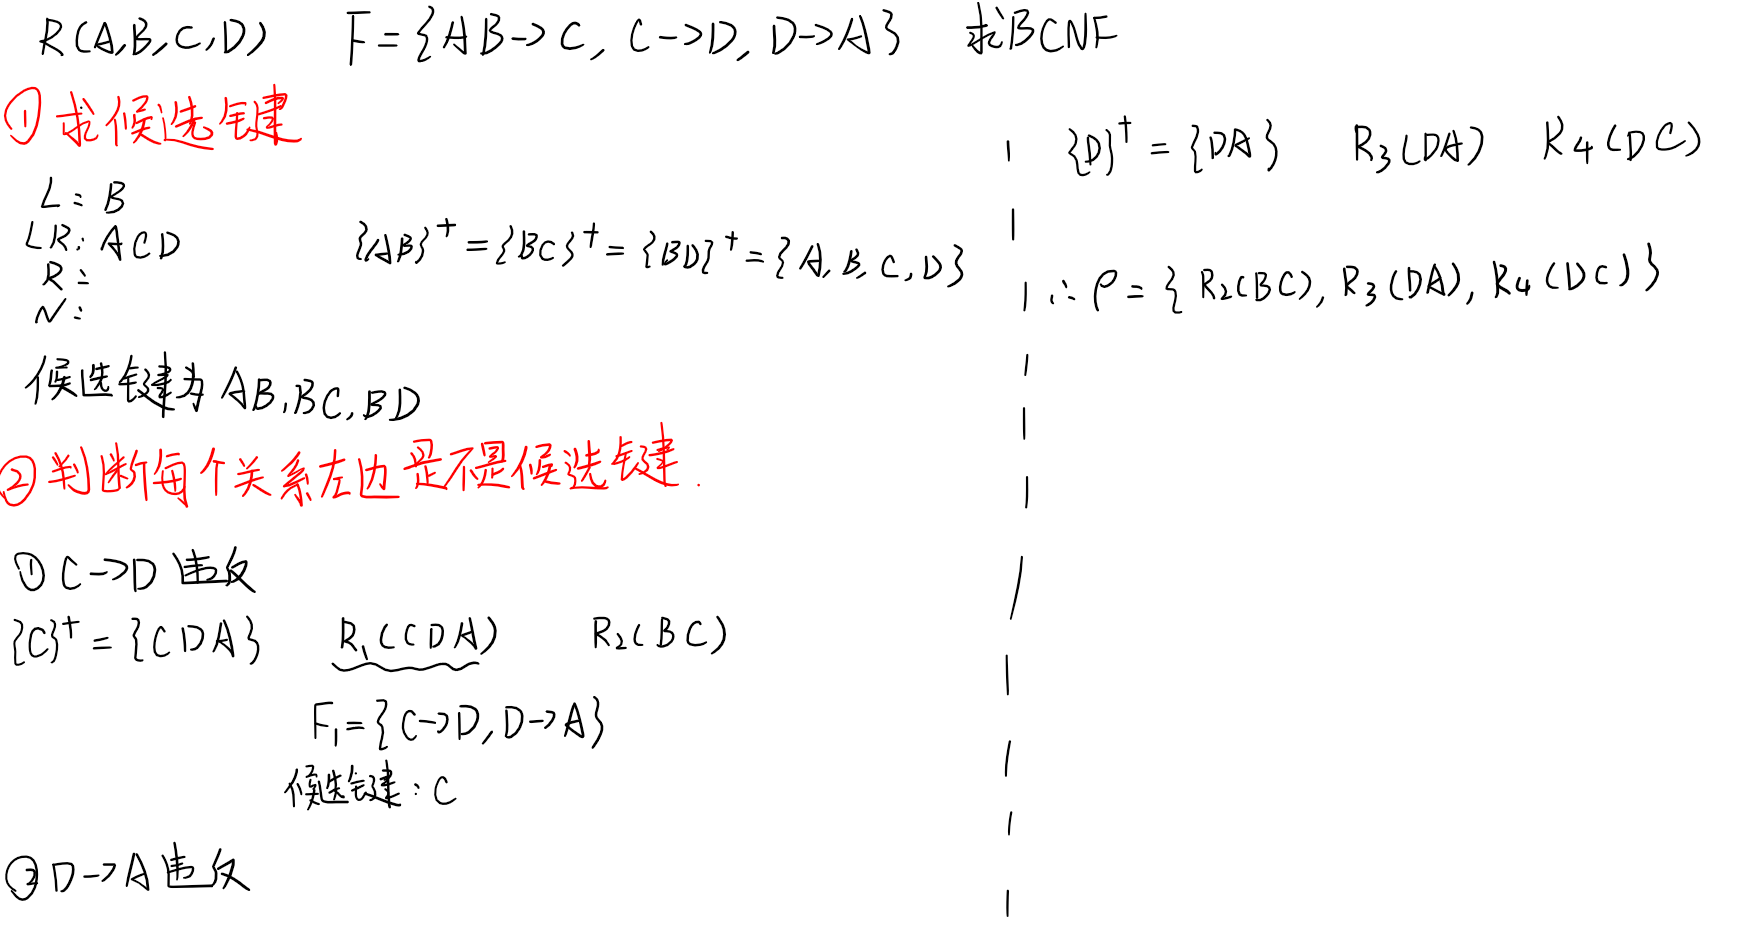 R(A,B,C,D) F={AB→C, C→D, D→A} 求BCNF
①求候选键
L: B
LR: ACD
R:
N:
{AB}⁺={BC}⁺={BD}⁺={A,B,C,D}
候选键为AB,BC,BD
②判断每个关系左边是不是候选键.
①C→D 违反
{C}⁺={CDA} R₁(CDA) R₂(BC)
F₁={C→D,D→A}
候选键:C
②D→A违反
{D}⁺={DA} R₃(DA) R₄(DC)
∴ρ={R₂(BC), R₃(DA), R₄(DC)}